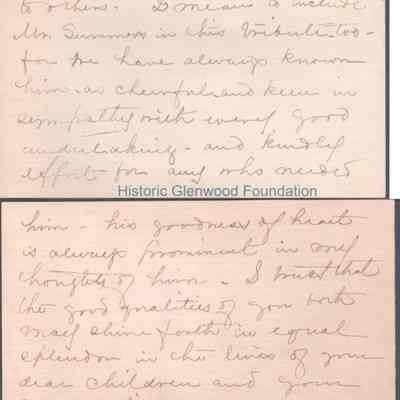 to others. I mean to include
Mr. Summers in this tribute too -
for we have always known
him as cheerful and keen in
sympathy with every good
undertaking - and kindly
efforts for any who needed
Historic Glenwood Foundation
him - his goodness of heart
is always prominent in my
thoughts of him. I trust that
the good qualities of you both
may shine forth in equal
splendor in the lives of your
dear children and your